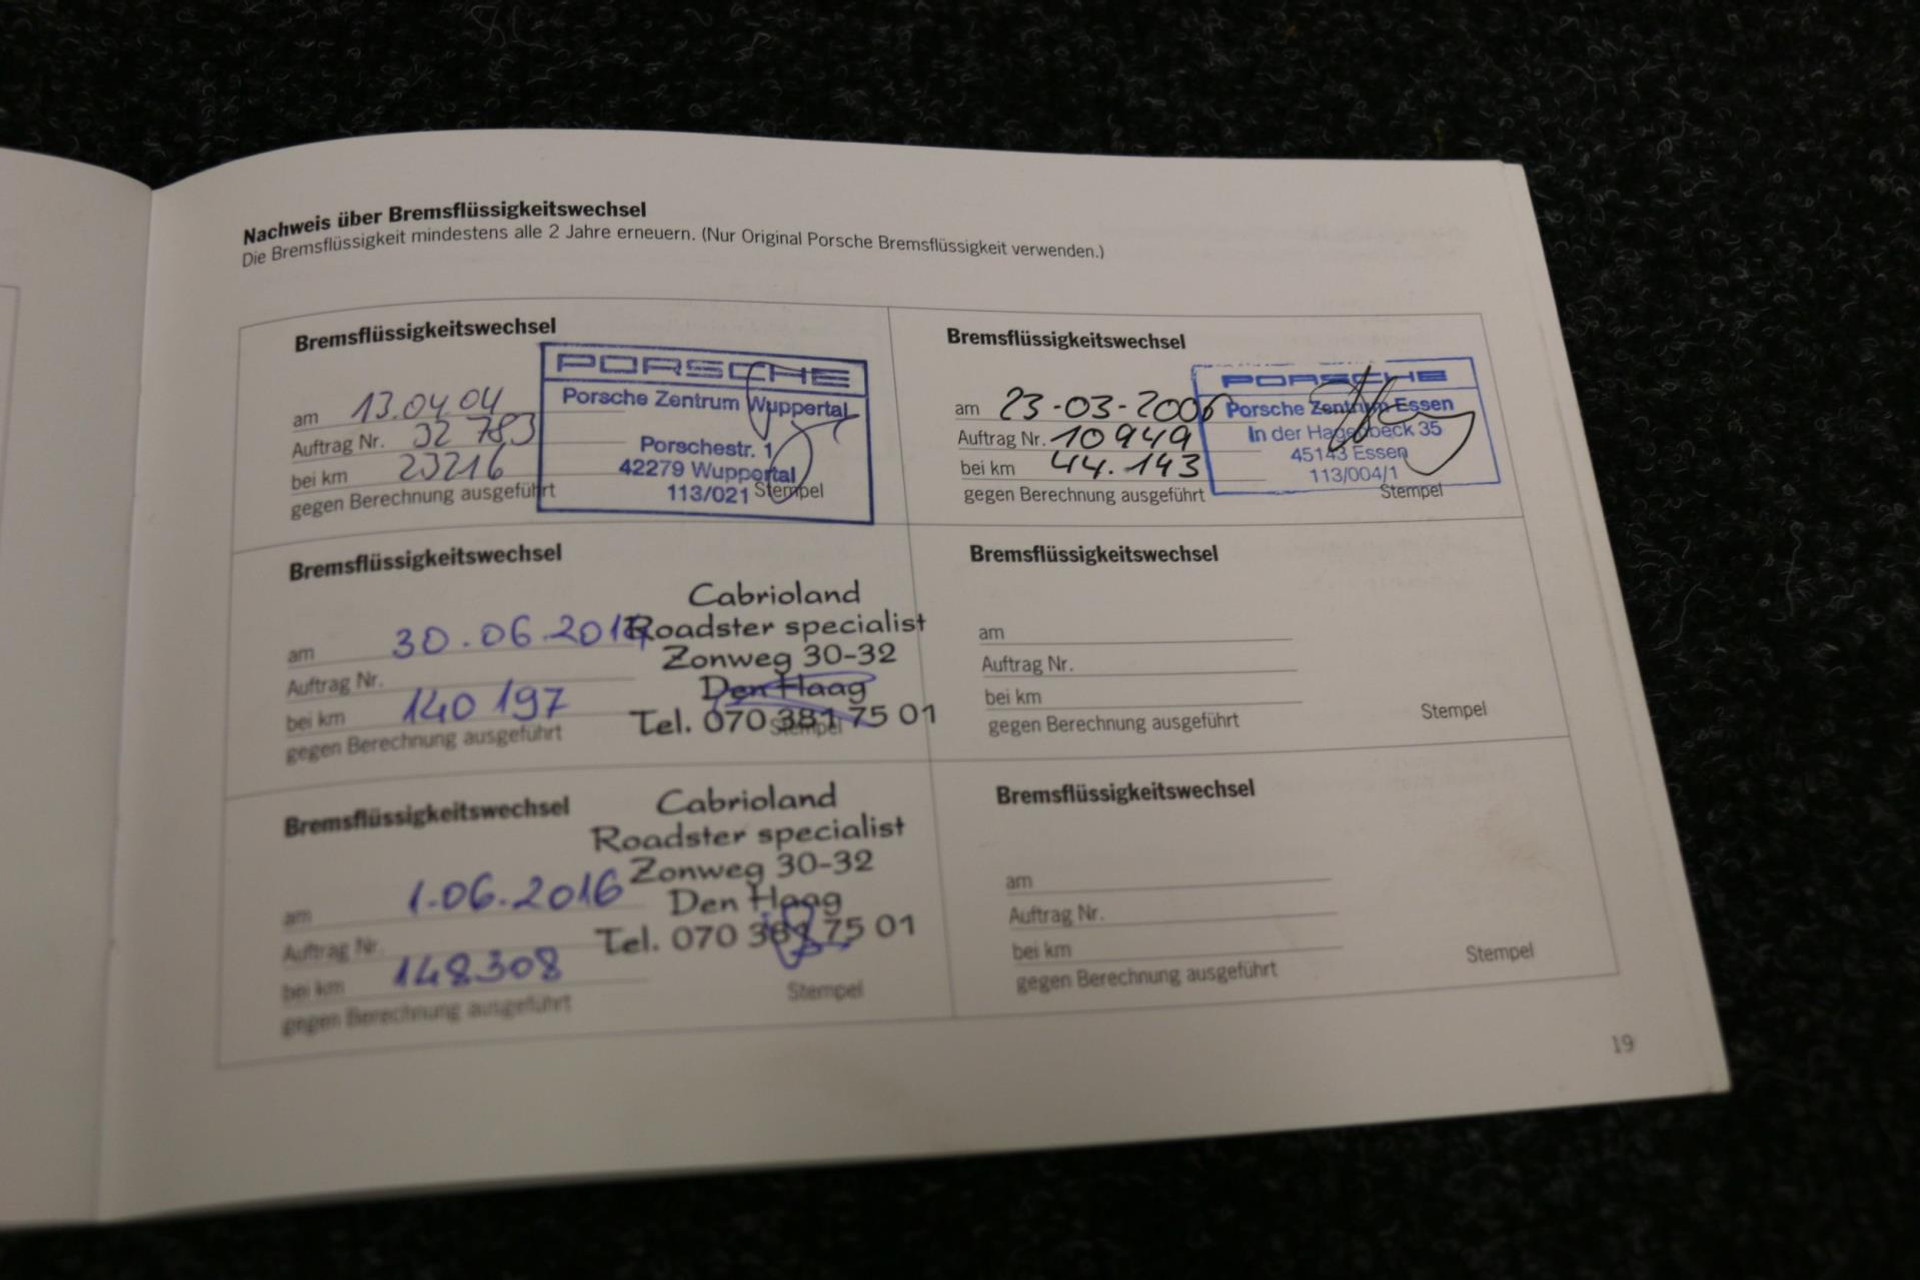 Nachweis über Bremsflüssigkeitswechsel
Die Bremsflüssigkeit mindestens alle 2 Jahre erneuern. (Nur Original Porsche Bremsflüssigkeit verwenden.)
Bremsflüssigkeitswechsel
am 13.04.04
Auftrag Nr. 32 783
bei km 23216
gegen Berechnung ausgeführt
PORSCHE
Porsche Zentrum Wuppertal
Porschestr. 1
42279 Wuppertal
113/021
Stempel
Bremsflüssigkeitswechsel
am 23-03-2006
Auftrag Nr. 10949
bei km 44.143
gegen Berechnung ausgeführt
PORSCHE
Porsche Zentrum Essen
In der Hagenbeck 35
45143 Essen
113/004/1
Stempel
Bremsflüssigkeitswechsel
am 30.06.2014
Auftrag Nr.
bei km 140 197
gegen Berechnung ausgeführt
Cabrioland
Roadster specialist
Zonweg 30-32
Den Haag
Tel. 070 381 75 01
Stempel
Bremsflüssigkeitswechsel
am
Auftrag Nr.
bei km
gegen Berechnung ausgeführt
Stempel
Bremsflüssigkeitswechsel
am 1.06.2016
Auftrag Nr.
bei km 148308
gegen Berechnung ausgeführt
Cabrioland
Roadster specialist
Zonweg 30-32
Den Haag
Tel. 070 381 75 01
Stempel
Bremsflüssigkeitswechsel
am
Auftrag Nr.
bei km
gegen Berechnung ausgeführt
Stempel
19